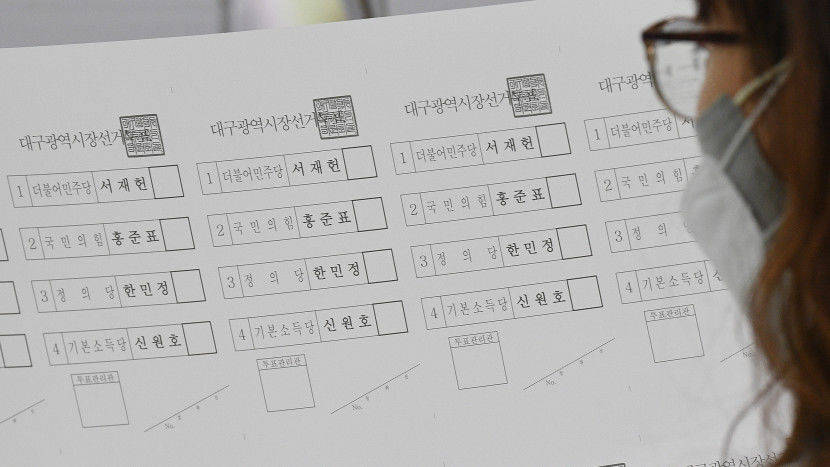 대구광역시장선거투표
1 더불어민주당 서재헌
2 국민의힘 홍준표
3 정의당 한민정
4 기본소득당 신원호
투표관리관
No.
대구광역시장선거투표
1 더불어민주당 서재헌
2 국민의힘 홍준표
3 정의당 한민정
4 기본소득당 신원호
투표관리관
No.
대구광역시장선거투표
1 더불어민주당 서재헌
2 국민의힘 홍준표
3 정의당 한민정
4 기본소득당 신원호
투표관리관
No.
대구광역
1 더불어민주당
2 국민의힘
3 정의당
4 기본소득당
투표관리관
No.
대구광역시장선